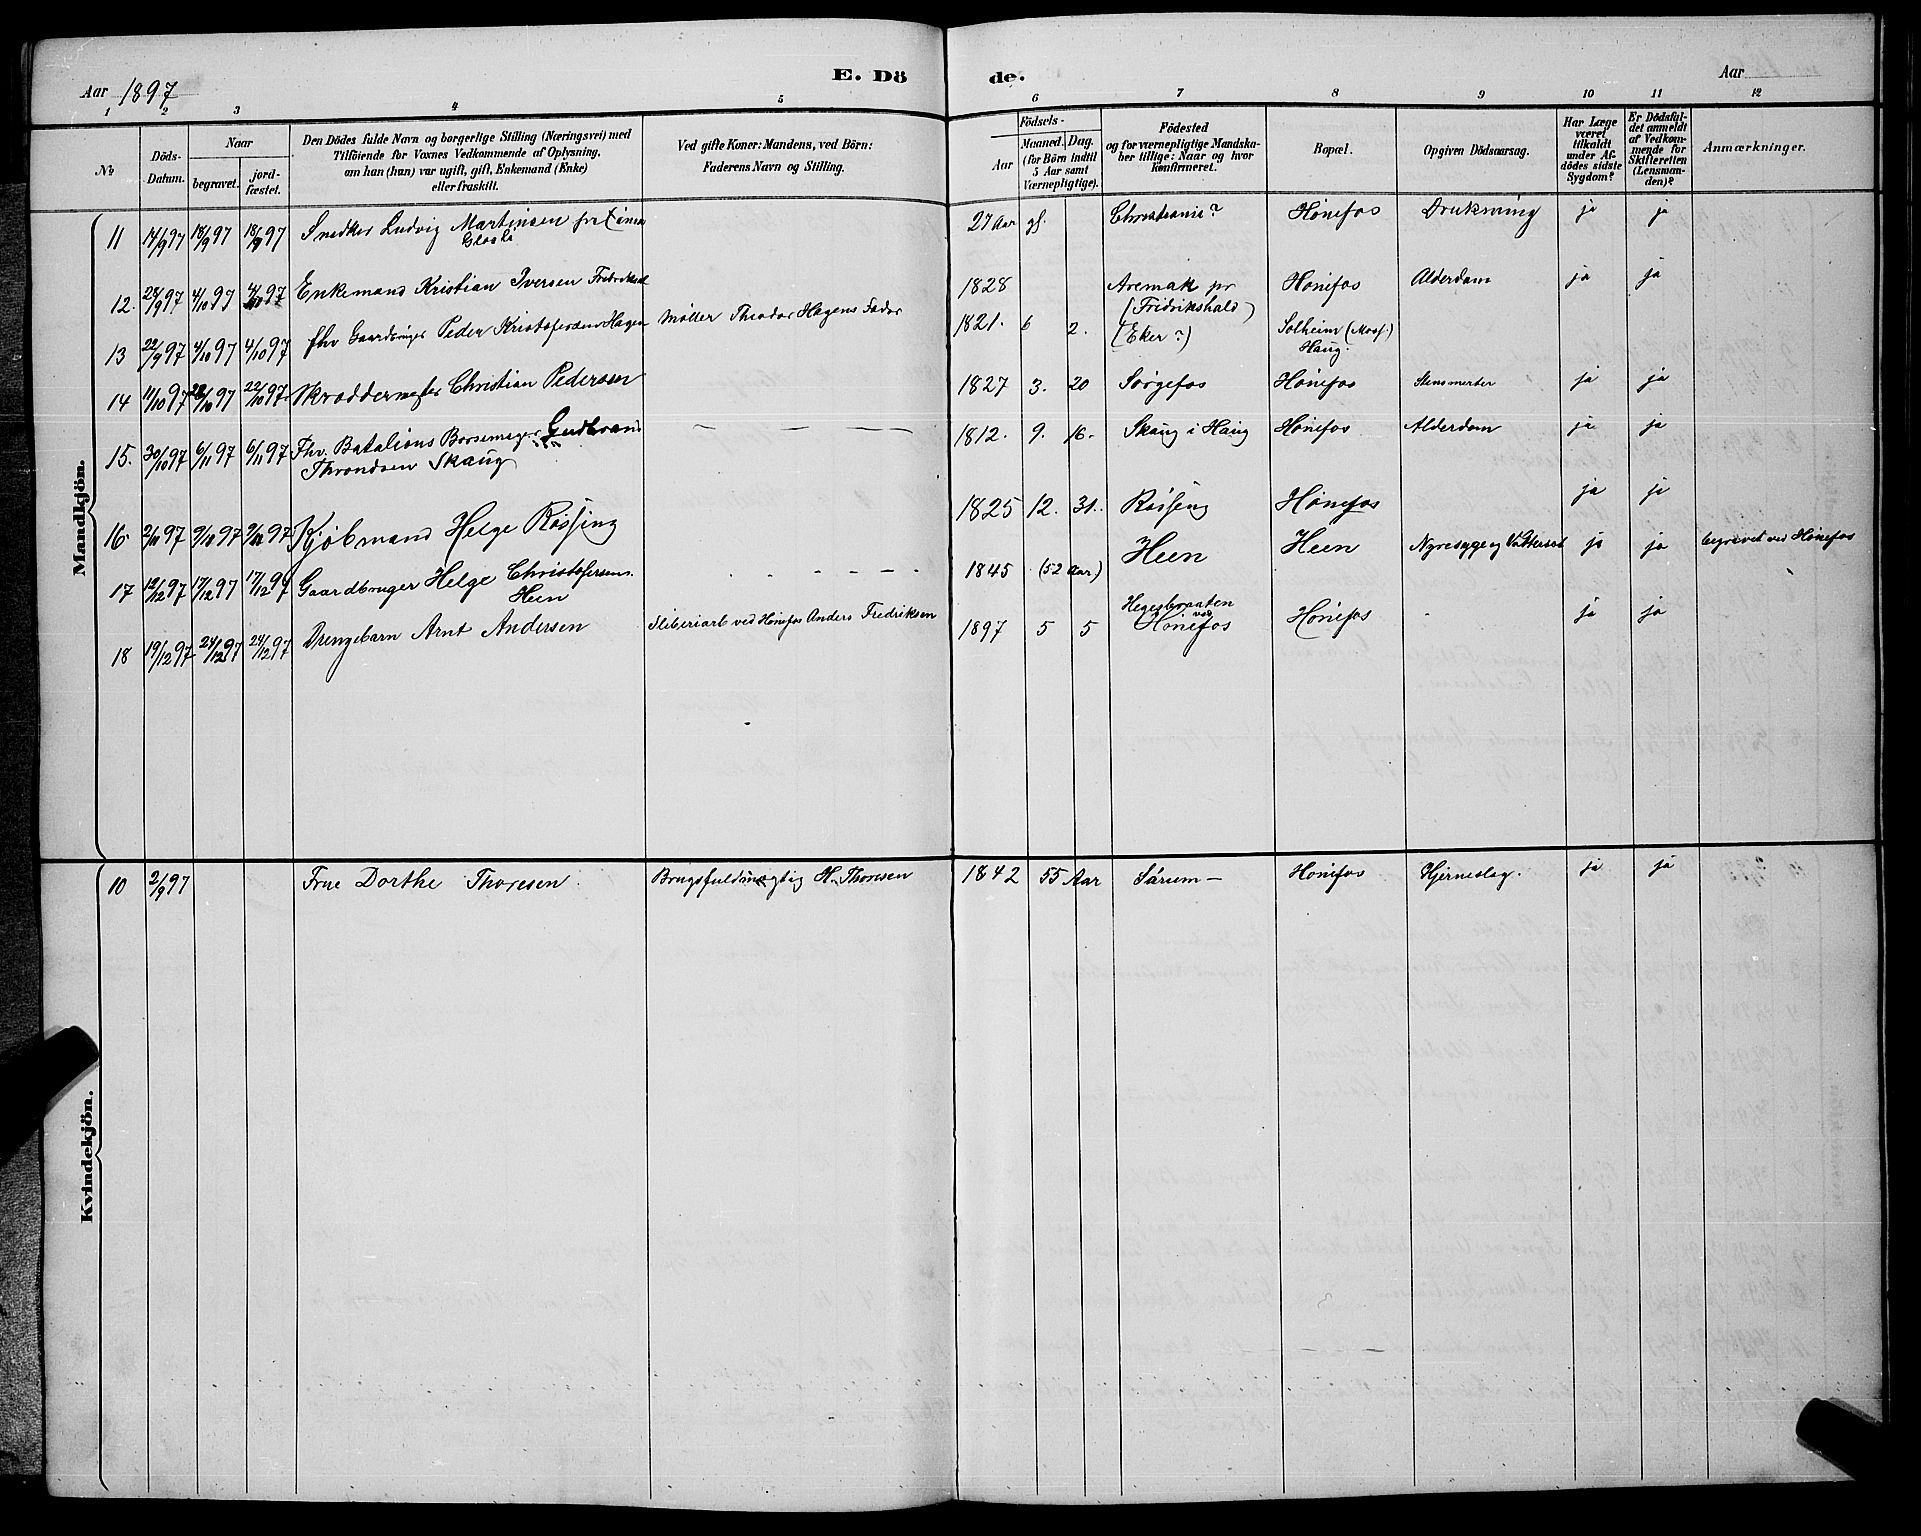 Aar 1897
E. Dö de.
Aar
1 2 3 4 5 6 7 8 9 10 11 12
No
Döds-Datum.
Naar
begravet.
jord-fæstet.
Den Dödes fulde Navn og borgerlige Stilling (Næringsvei) med
Tilföiende for Voxnes Vedkommende af Oplysning,
om han (hun) var ugift, gift, Enkemand (Enke)
eller fraskilt.
Ved gifte Koner: Mandens, ved Börn:
Faderens Navn og Stilling.
Födsels-
Aar
Maaned. Dag.
(for Börn indtil
5 Aar samt
Værnepligtige).
Födested
og for værnepligtige Mandska-
ber tillige: Naar og hvor
konfirmeret.
Bopæl.
Opgiven Dödsaarsag.
Har Læge
været
tilkaldt
under Af-
dödes sidste
Sygdom?
Er Dödsfal-
det anmeldt
af Vedkom-
mende for
Skifteretten
(Lensman-
den)?
Anmærkninger.
Mandkjön.
11 14/9 97 18/9 97 18/9 97 Snedker Ludvig Martinsen fra 27 Aar gf. Christiania? Hönefos Drukning ja ja
12. 28/9 97 4/10 97 4/10 97 Enkemand Kristian Iversen 1828 Aremak pr Hönefos Alderdom ja ja
(Fridrikshald)
13 22/9 97 4/10 97 4/10 97 fhv Gaardbruger Peder Kristofersen Hagen Møller Theodor Hagens Fader 1821. 6 2. (Eker?) Solheim
Haug.
14 11/10 97 22/10 97 22/10 97 Skræddermester Christian Pedersen 1827 3. 20 Sørgefos Hönefos Stensmerter ja ja
15. 30/10 97 6/11 97 6/11 97 Fhv. Batalions Bøssemager Gudbrand — — — 1812. 9. 16. Skaug i Haug Hönefos Alderdom ja ja
Throndsen Skaug
16. 2/11 97 9/11 97 9/11 97 Kjøbmand Helge Røssing 1825 12. 31. Røssing Hönefos ja ja
17 12/12 97 17/12 97 17/12 97 Gaardbruger Helge Christofersen - - - - 1845 (52 Aar) Heen Heen Nyresyge og Vattersot ja ja begravet ved Hönefos
Heen
18 19/12 97 24/12 97 24/12 97 Drengebarn Arnt Andersen Sliberiarb ved Hönefos Anders Fredriksen 1897 5 5 Hegesbraaten ved Hönefos Hönefos - ja ja
Kvindekjön.
10 2/9 97 Frue Dorthe Thoresen Brugsfuldmægtig H. Thoresen 1842 55 Aar Sørum — Hönefos Hjerneslag. ja ja